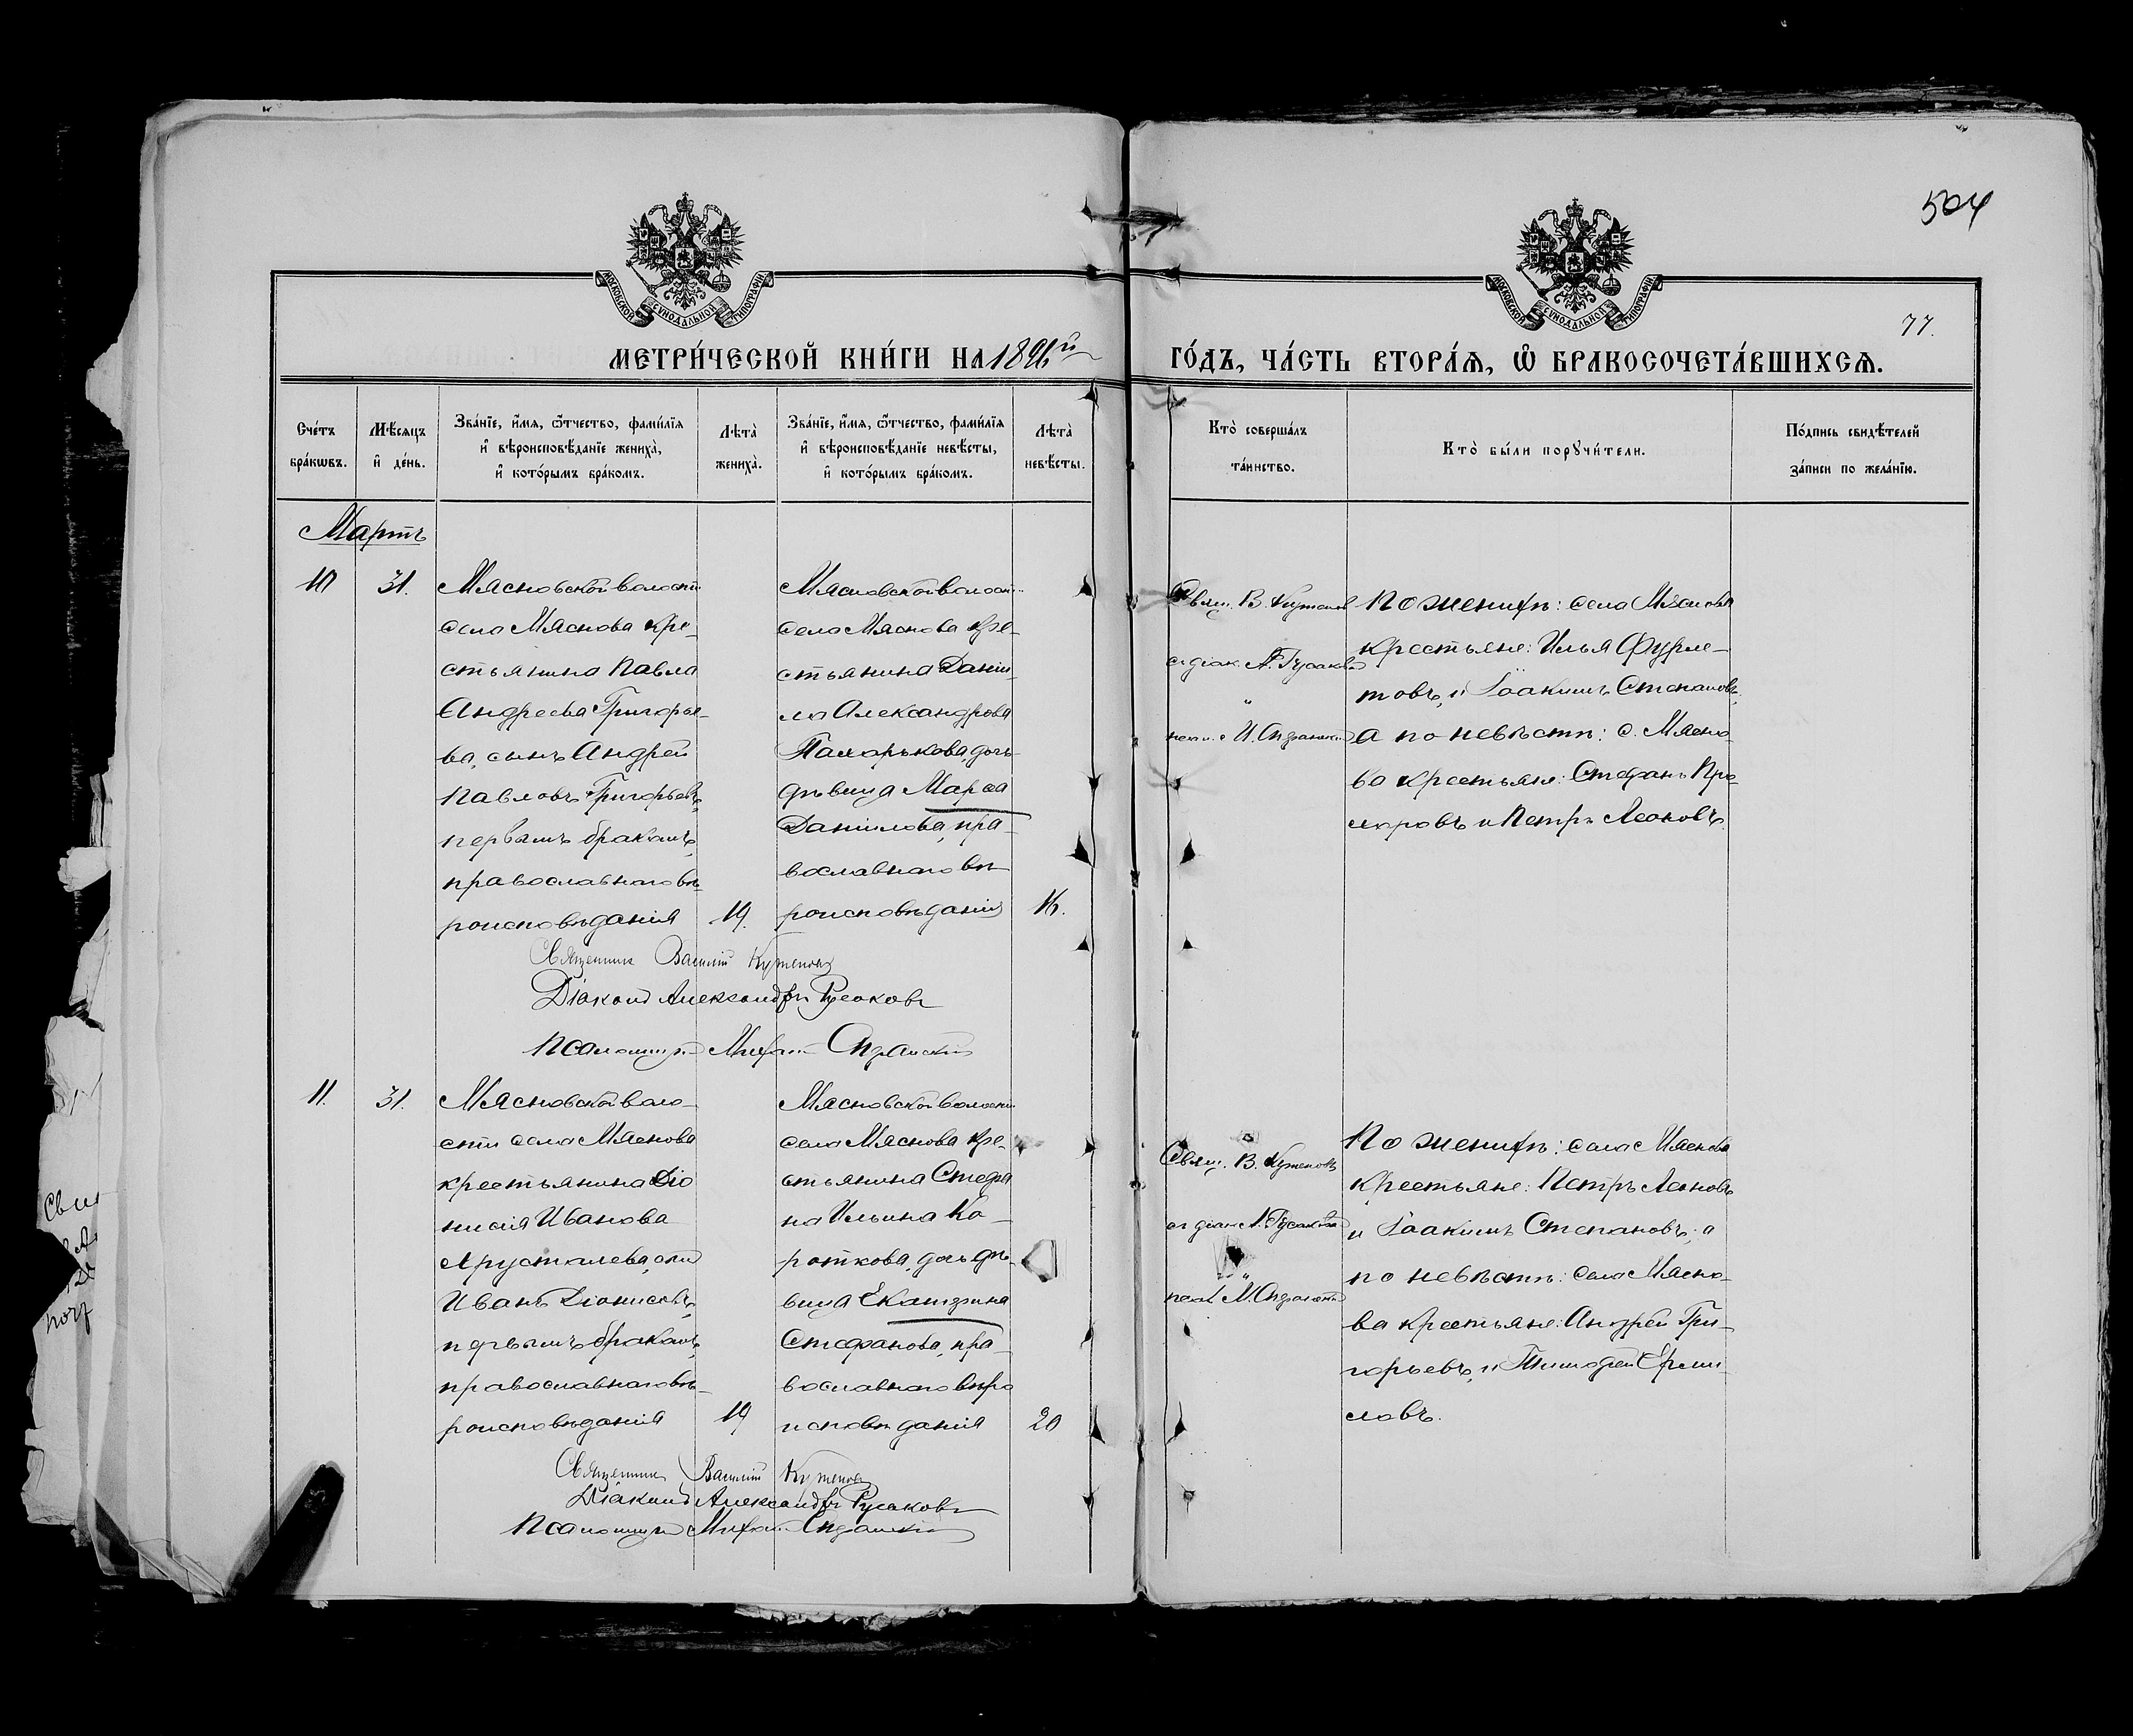 504
МОСКОВСКОЙ СѴНОДАЛЬНОЙ ТИПОГРАФІИ
МОСКОВСКОЙ СѴНОДАЛЬНОЙ ТИПОГРАФІИ
77.
МЕТРИ́ЧЕСКОЙ КНИ́ГИ НА 1896й ГО́ДЪ, ЧА́СТЬ ВТОРА́Я, Ѽ БРАКОСОЧЕТА́ВШИХСѦ.
Сче́тъ
бра́кѡвъ.
Мѣ́сяцъ
и҆ де́нь.
Зва́нїе, и҆́мѧ, ѻ҆́тчество, фами́лїѧ
и҆ вѣроисповѣ́данїе жениха̀,
и҆ кото́рымъ бра́комъ.
Лѣта̀
жениха̀.
Зва́нїе, и҆́мѧ, ѻ҆́тчество, фами́лїѧ
и҆ вѣроисповѣ́данїе невѣ́сты,
и҆ кото́рымъ бра́комъ.
Лѣта̀
невѣ́сты.
Кто̀ соверша́лъ
та́инство.
Кто̀ бы́ли порꙋчи́тели.
По́дпись свидѣ́телей
за́писи по жела́нїю.
Мартъ
10
31.
Мясновской волости
села Мяснова кре-
стьянина Павла
Андреева Григорье-
ва, сынъ Андрей
Павловъ Григорьевъ,
первымъ бракомъ,
православнаго вѣ-
роисповѣданія
19.
Мясновской волости
села Мяснова кре-
стьянина Дані-
ла Александрова
дочь
дѣвица Марѳа
Данилова, пра-
вославнаго вѣ-
роисповѣданія
16.
Свящ. В. Кутеповъ
съ діак. А. Русаковы
По женихѣ: села Мяснова
крестьяне: Илья Фурле-
товъ, и Іоакимъ Степановъ,
а по невѣстѣ: с. Мясно-
ва крестьяне: Стефанъ
и Петръ Леоновъ.
Священникъ Василій Кутеповъ
Діаконъ Александръ Русаковъ
Псаломщикъ
11.
31.
Мясновской воло-
сти села Мяснова
крестьянина Діо
нисія Иванова
Хрусталева, сынъ
Иванъ Діонисовъ,
первымъ бракомъ,
православнаго вѣ-
роисповѣданія
19
Мясновской волости
села Мяснова кре-
стьянина Стефа
на Ильина Ко-
роткова, дочь дѣ-
вица Екатерина
Стефанова, пра-
вославнаго вѣро
исповѣданія
20
Свящ. В. Кутеповъ
съ діак. А. Русаковы
По женихѣ: села Мяснова
крестьяне: Петръ Леоновъ
и Іоакимъ Степановъ; а
по невѣстѣ: села Мясно-
ва крестьяне: Андрей Гри-
горьевъ, и Тимофей Ерми-
ловъ.
Священникъ Василій Кутеповъ
Діаконъ Александръ Русаковъ
Псаломщикъ